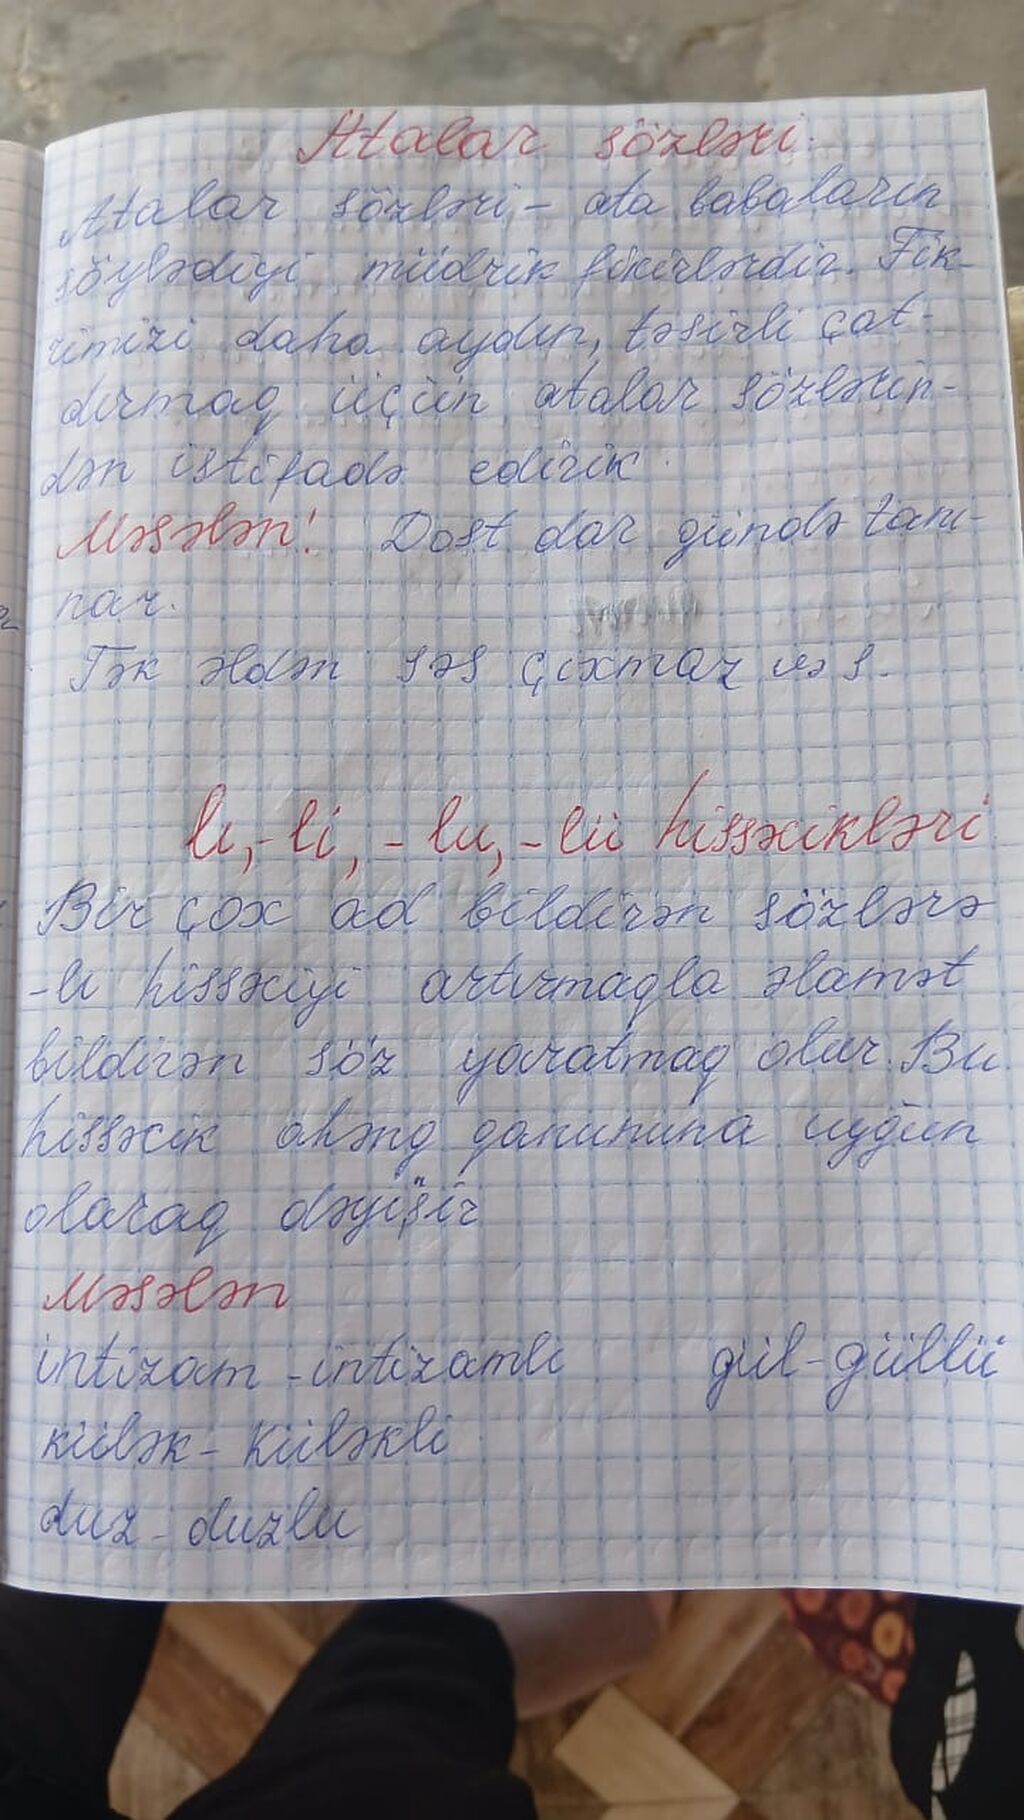 Atalar sözləri.
Atalar sözləri – ata babaların
söylədiyi müdrik fikirlərdir. Fik-
rimizi daha aydın, təsirli çat-
dırmaq üçün atalar sözlərin-
dən istifadə edirik.
Məsələn! Dost dar gündə tanı-
nar.
Tək əldən səs çıxmaz və s.
lı, -li, - lu, - lü hissəcikləri
Bir çox ad bildirən sözlərə
-lı hissəciyi artırmaqla əlamət
bildirən söz yaratmaq olur. Bu
hissəcik ahəng qanununa uyğun
olaraq dəyişir
Məsələn
intizam - intizamlı gül - güllü
külək - küləkli
duz - duzlu